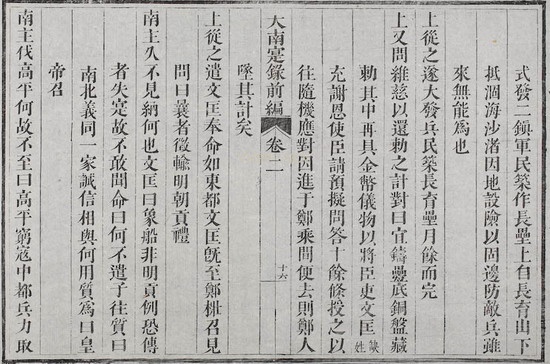 式發二鎮軍民築作長壘上自長育山下
抵涸海沙渚因地設險以固邊防敵兵雖
來無能爲也
上從之遂大發兵民築長育壘月餘而完
上又問維慈以還勅之計對曰宜鑄疊底銅盤藏
勅其中再具金幣儀物以將臣吏文匡缺姓
充謝恩使臣請預擬問答十餘條授之以
往隨機應對因進于鄭乘間便去則鄭人
大南寔錄前編 卷二 十六
墜其計矣
上從之遣文匡奉命如東都文匡旣至鄭棇召見
問曰曩者徵輸明朝貢禮
南主久不見納何也文匡曰象船非明貢例恐傳
者失寔故不敢聞命曰何不遣子往質曰
南北義同一家誠信相與何用質爲曰皇
帝召
南主伐高平何故不至曰高平窮寇中都兵力取